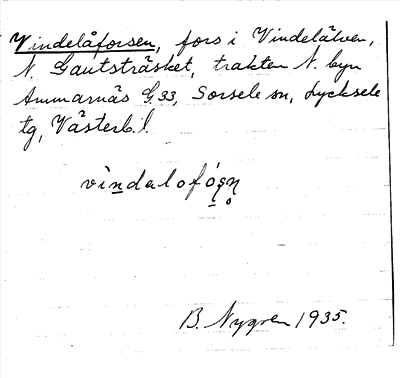 Vindelåforsen, fors i Vindelälven,
N. Gautsträsket, trakten N. byn
Ammarnäs G 33, Sorsele sn, Lycksele
tg, Västerb. l.
vindalofǫʂn̥
B. Nygren 1935.